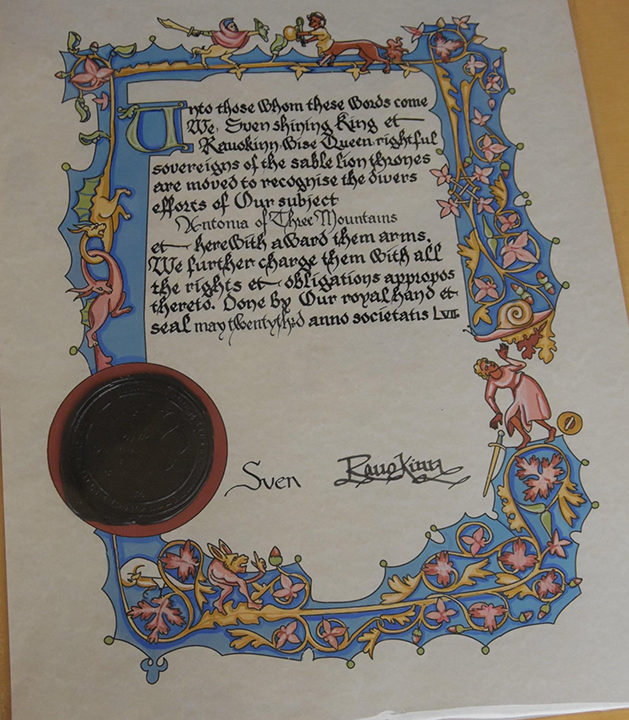 Unto those whom these words come
We, Sven shining King et
Rauokinn Wise Queen, rightful
sovereigns of the sable lion thrones
are moved to recognise the divers
efforts of Our subject
Antonia of Three Mountains
et herewith award them arms.
We further charge them with all
the rights et obligations appropos
thereto. Done by Our royal hand et
seal may twenty third anno societatis LVII.
Sven Rauokinn